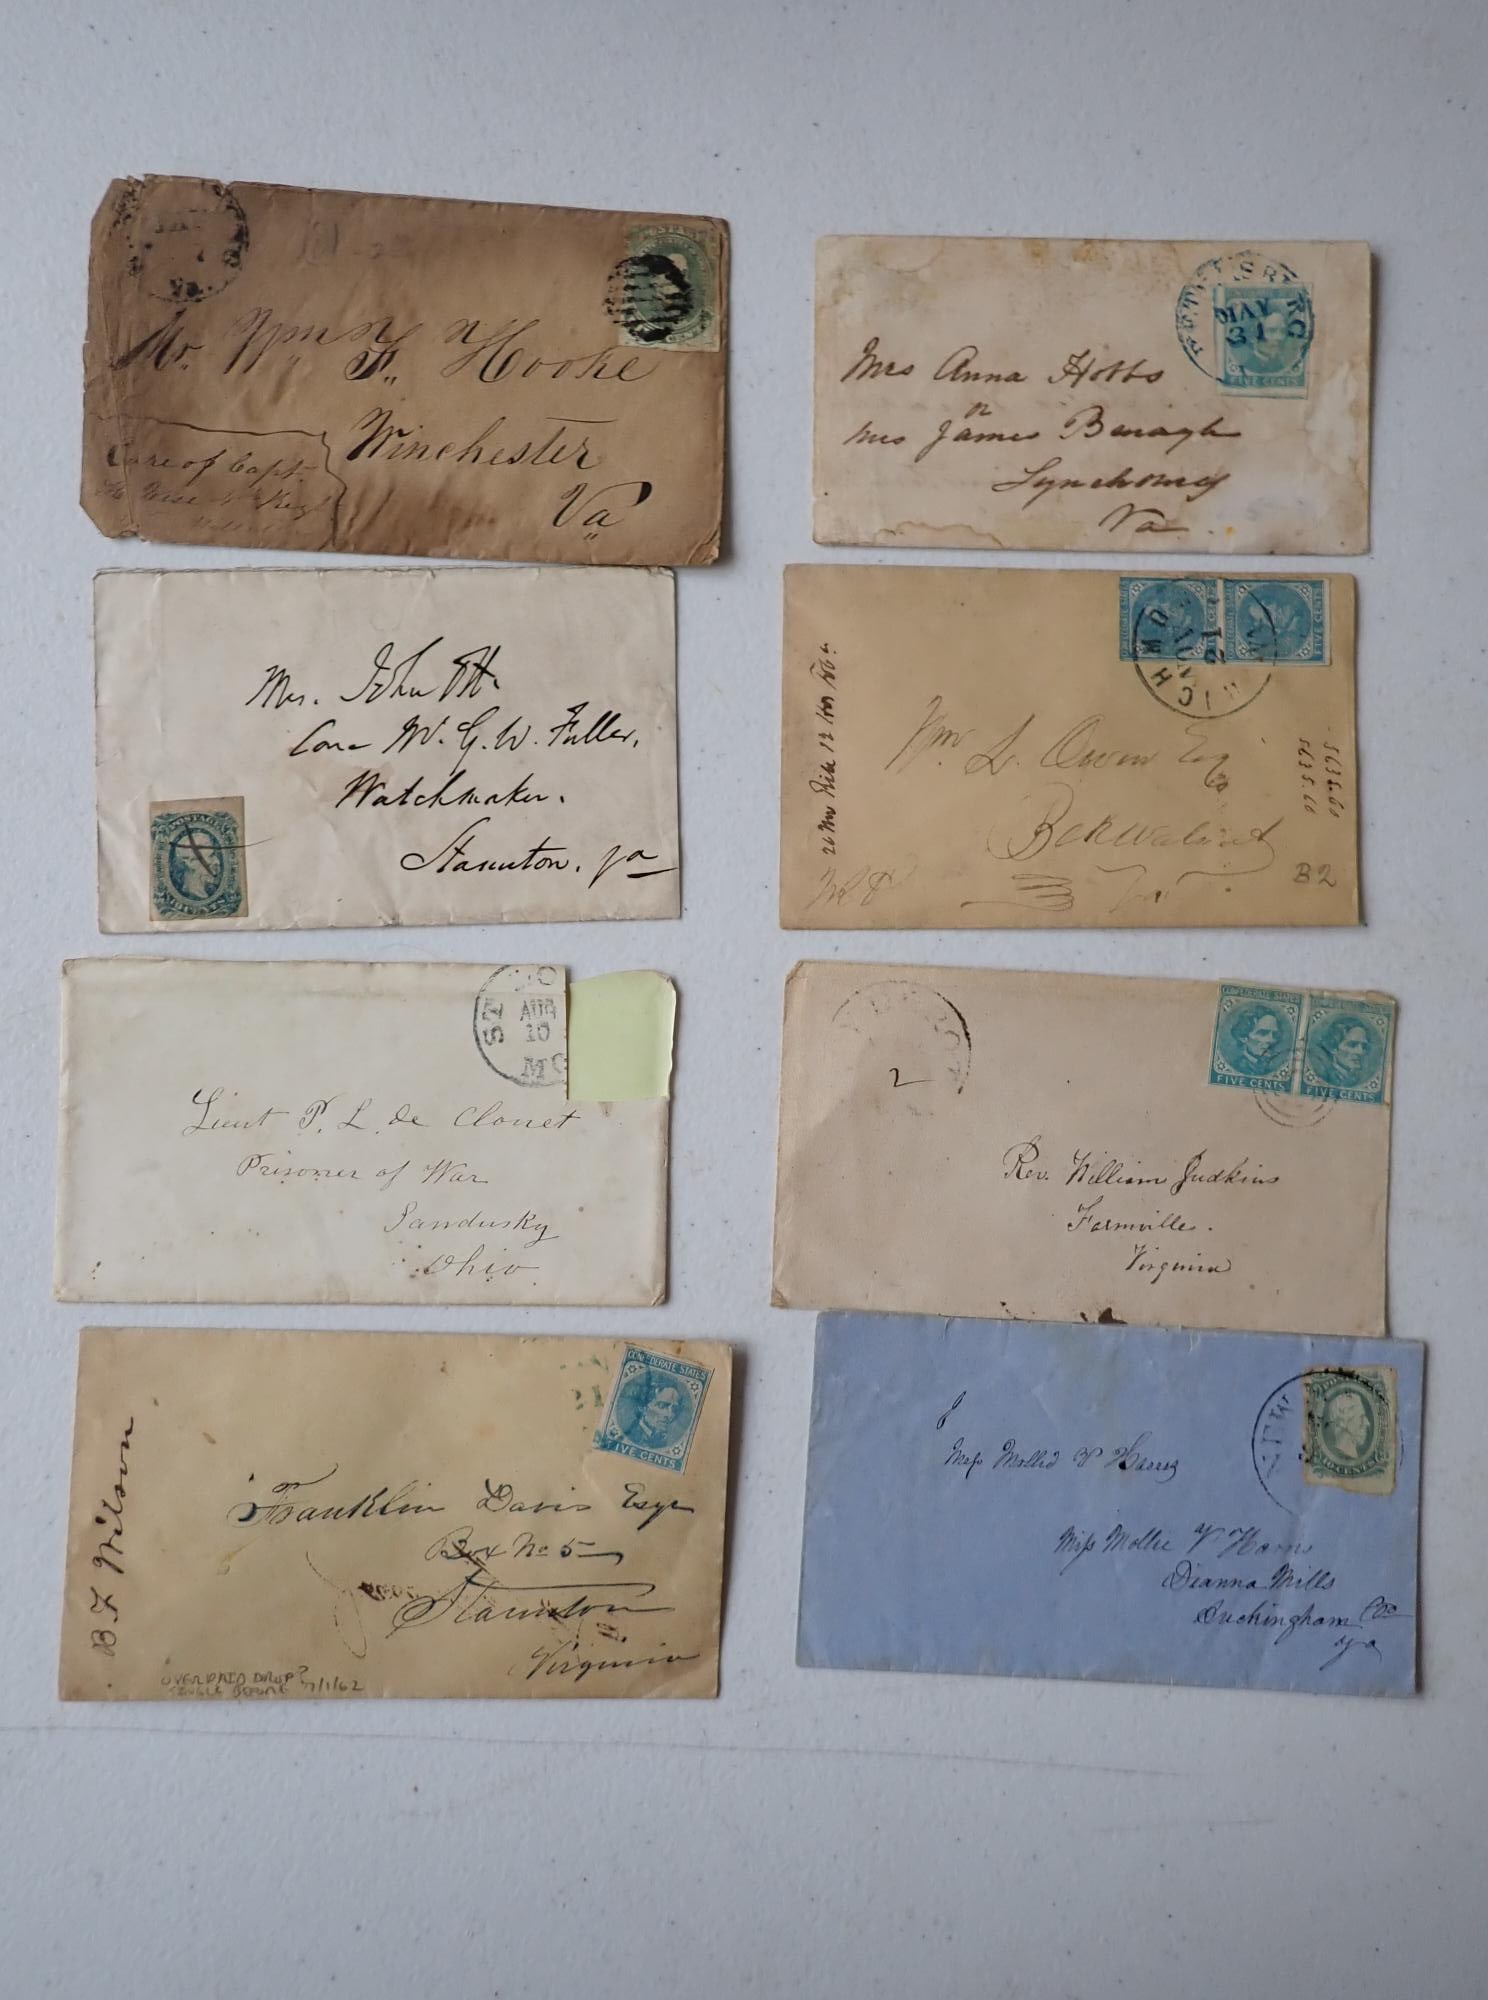 Va.
POSTAGE
Mr. Wm F. Hooke
Winchester
Va
Care of Capt.
PETERSBURG
MAY
31
FIVE CENTS
Mrs Anna Hobbs
Mrs James
Lynchburg
Va
Mrs. John H.
Care Mr. G. W. Fuller,
Watchmaker.
Staunton, Va
POSTAGE
CENTS
RICHMOND
12
FIVE CENTS
Wm L. Owen Esq
5635.60
5635.60
B2
ST
AUG
10
MO
Lieut P. L. de Clouet
Prisoner of War
Sandusky
Ohio
2
CONFEDERATE STATES
FIVE CENTS
CONFEDERATE STATES
FIVE CENTS
Rev. William Judkins
Farmville.
Virginia
B. F Wilson
CONFEDERATE STATES
FIVE CENTS
Franklin Davis Esqr
Box No 5
Staunton
Virginia
OVERPAID DROP?
SINGLE BEFORE 7/1/62
CENTS
Miss Mollie V Harris
Miss Mollie V Harris
Dianna Mills
Buckingham Co
Va